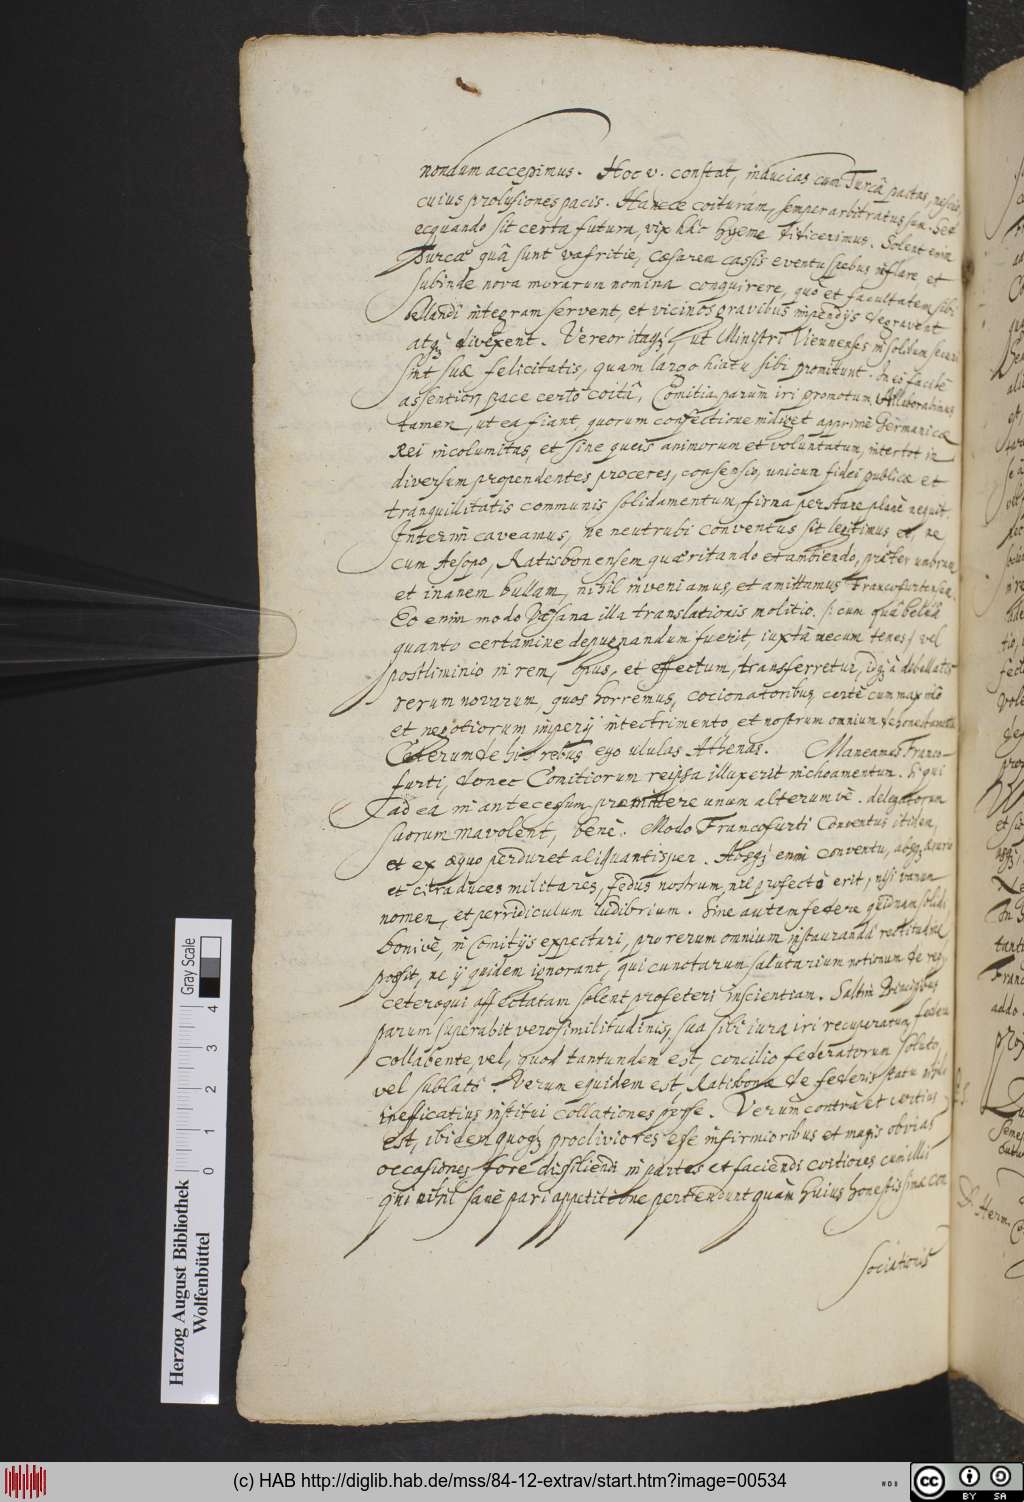 nondum accepimus. Hoc v. constat, inducias cum Turcâ pactas,
cuius prolusiones pacis. Hancce coituram, semper arbitratus sum. Sed
ecquando sit certa futura, vix hâc hyeme didicerimus. Solent enim
Turcae quâ sunt vafritie, Caesarea cassis eventu spebus inflare, et
subinde nova morarum nomina conquirere, quò et facultatem sibi
bellandi integram servent, et vicinos gravibus impendijs degravent
atq; divexent. Vereor itaq; ut Ministri Viennenses in solidum securi
sint suae felicitatis, quam largo hiatu sibi promittunt. In eò facilè
assentior, pace certò coitû, Comitia parùm iri promotum. Allaborabimus
tamen, ut ea fiant, quorum confectione indiget apprimè Germanicae
Rei incolumitas, et sine queis animorum et voluntatum, intertot in
diversum propendentes proceres, consensio, unicum fidei publicae et
tranquillitatis communis solidamentum, firma perstare planè nequit.
Interim caveamus, ne neutrubi conventus sit legitimus, et, ne
cum Aesopo, Ratisbonensem quaeritando et ambiendo, praeter umbram
et inanem bullam, nihil inveniamus, et amittamus Francofurtensem.
Eo enim modo Vaesana illa translationis molitio (: cum quâ belua
quanto certamine depugnandum fuerit, iuxtà mecum tenes,) vel
postliminio in rem, opus, et effectum, transferretur, idq; à debellatis
rerum novarum, quos horremus, cocionatoribus, certè cum maximo
et negotiorum imperij intectrimento et nostrum omnium dehonestamento
Ceterum de his rebus ego ululas Athenas. Maneamus Franco-
furti, donec Comitiorum reipsa illuxerit inchoamentum. Si qui
ad ea in antecessum praemittere unum alterumvè delegatorum
suorum mavolent, benè. Modo Francofurti Conventus itidem,
et ex aequo perduret aliquantisper. Absq; enim conventu, absq; aerario
et citra duces militares, fedus nostrum, nil profectò erit, nisi vanum
nomen, et perridiculum ludibrium. Sine autem federe quidnam solidi
bonivè, in Comitijs expectari, pro rerum omnium instaurandâ rectitudine
possit, ne ij quidem ignorant, qui cunctarum salutarium notionum de rep.
ceteroqui affectatam solent profiteri inscientiam. Saltim Principibus
parum superabit verosimilitudinis, sua sibi iura iri recuperatum, federe
collabente, vel, quod tantundem est, concilio federatorum soluto,
vel sublato. Verum equidem est, Ratisbonae de federis statu nihilo
inefficatius institui collationes posse. Verùm contrà et certius
est, ibidem quoq; procliviores esse infirmioribus et magis obvias
occasiones fore dissiliendi in partes et faciendi coitiones cum illis
qui nihil sanè pari appetitione pertendunt quàm huius honestissimae con
sociationis
Herzog August Bibliothek
Wolfenbüttel
0 1 2 3 4
Gray Scale
(c) HAB http://diglib.hab.de/mss/84-12-extrav/start.htm?image=00534